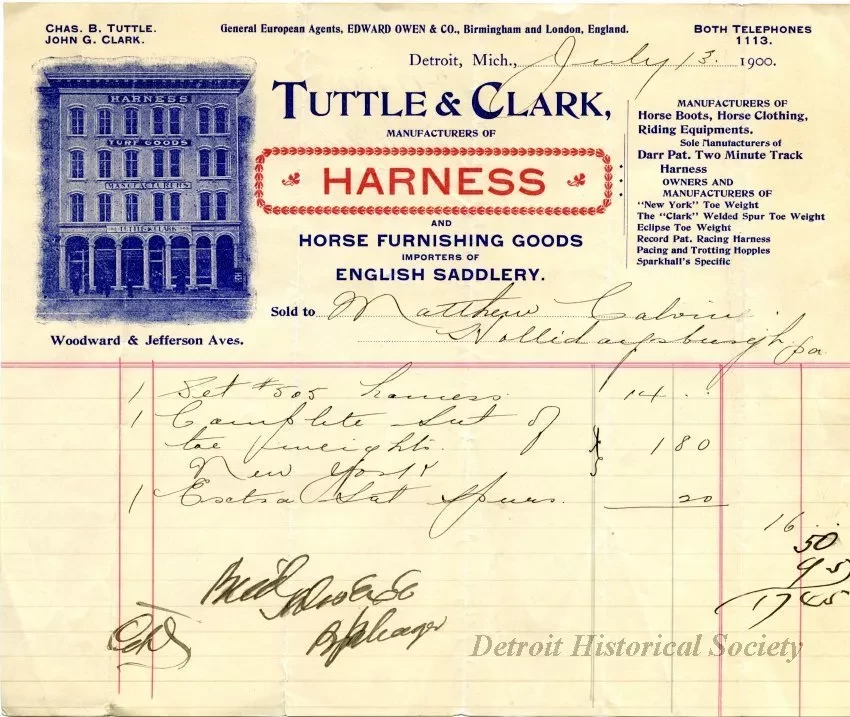 CHAS. B. TUTTLE.
JOHN G. CLARK.
General European Agents, EDWARD OWEN & CO., Birmingham and London, England.
BOTH TELEPHONES
1113.
Detroit, Mich., July 13. 1900.
HARNESS
TURF GOODS
MANUFACTURERS
TUTTLE & CLARK
Woodward & Jefferson Aves.
TUTTLE & CLARK,
MANUFACTURERS OF
HARNESS
AND
HORSE FURNISHING GOODS
IMPORTERS OF
ENGLISH SADDLERY.
MANUFACTURERS OF
Horse Boots, Horse Clothing,
Riding Equipments.
Sole Manufacturers of
Darr Pat. Two Minute Track
Harness
OWNERS AND
MANUFACTURERS OF
"New York" Toe Weight
The "Clark" Welded Spur Toe Weight
Eclipse Toe Weight
Record Pat. Racing Harness
Pacing and Trotting Hopples
Sparkhall's Specific
Sold to Matthew Calvin
Hollidaysburgh, pa
1 Set #505 harness 14
1 Complete Set of
toe weights. 1 80
New York
1 Extra Set Spurs. 20
16
50
95
17 45
Detroit Historical Society